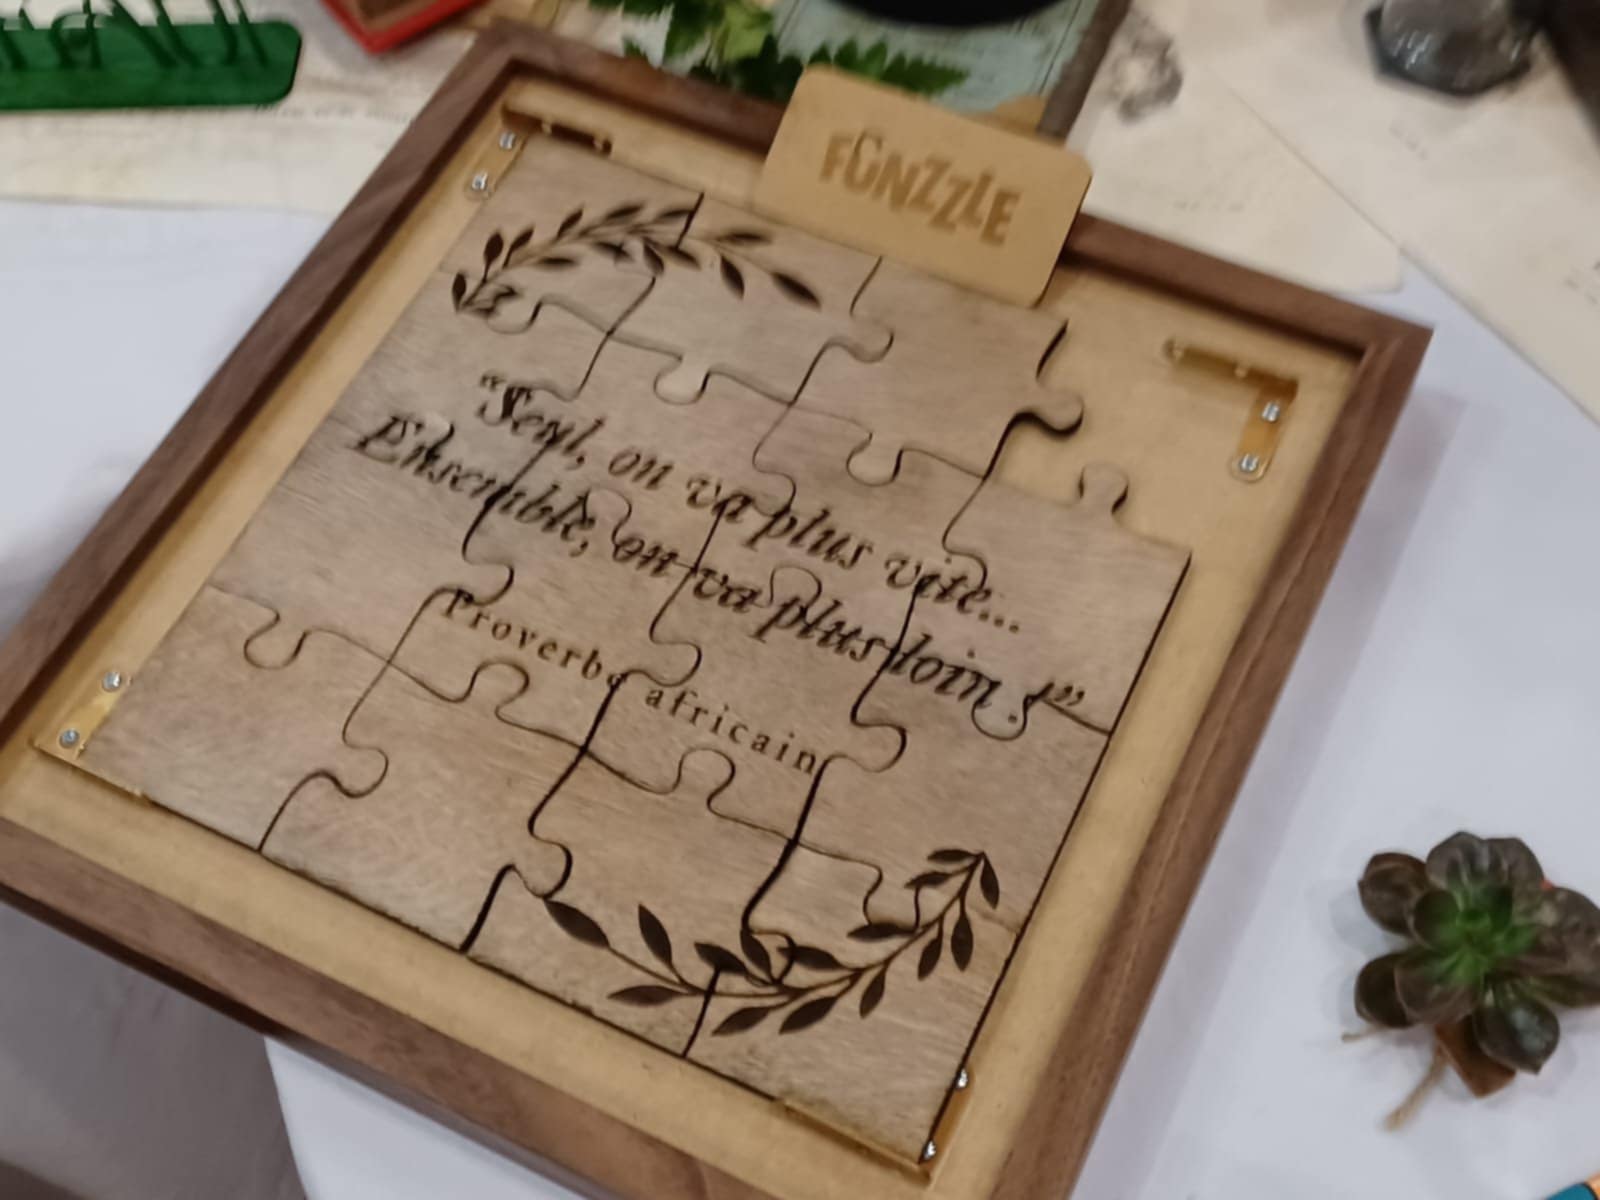 FUNZZLE
“Seul, on va plus vite...
Ensemble, on va plus loin !”
Proverbe africain